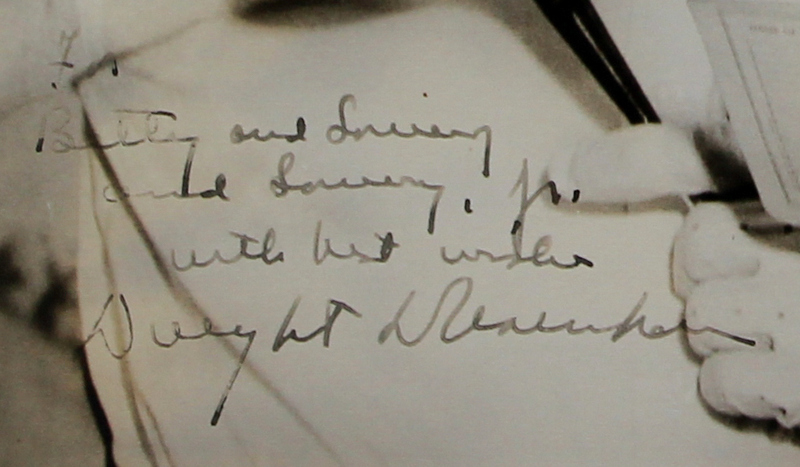 For
Betty and Lowry
and Lowry, Jr.
with best wishes
Dwight D Eisenhower